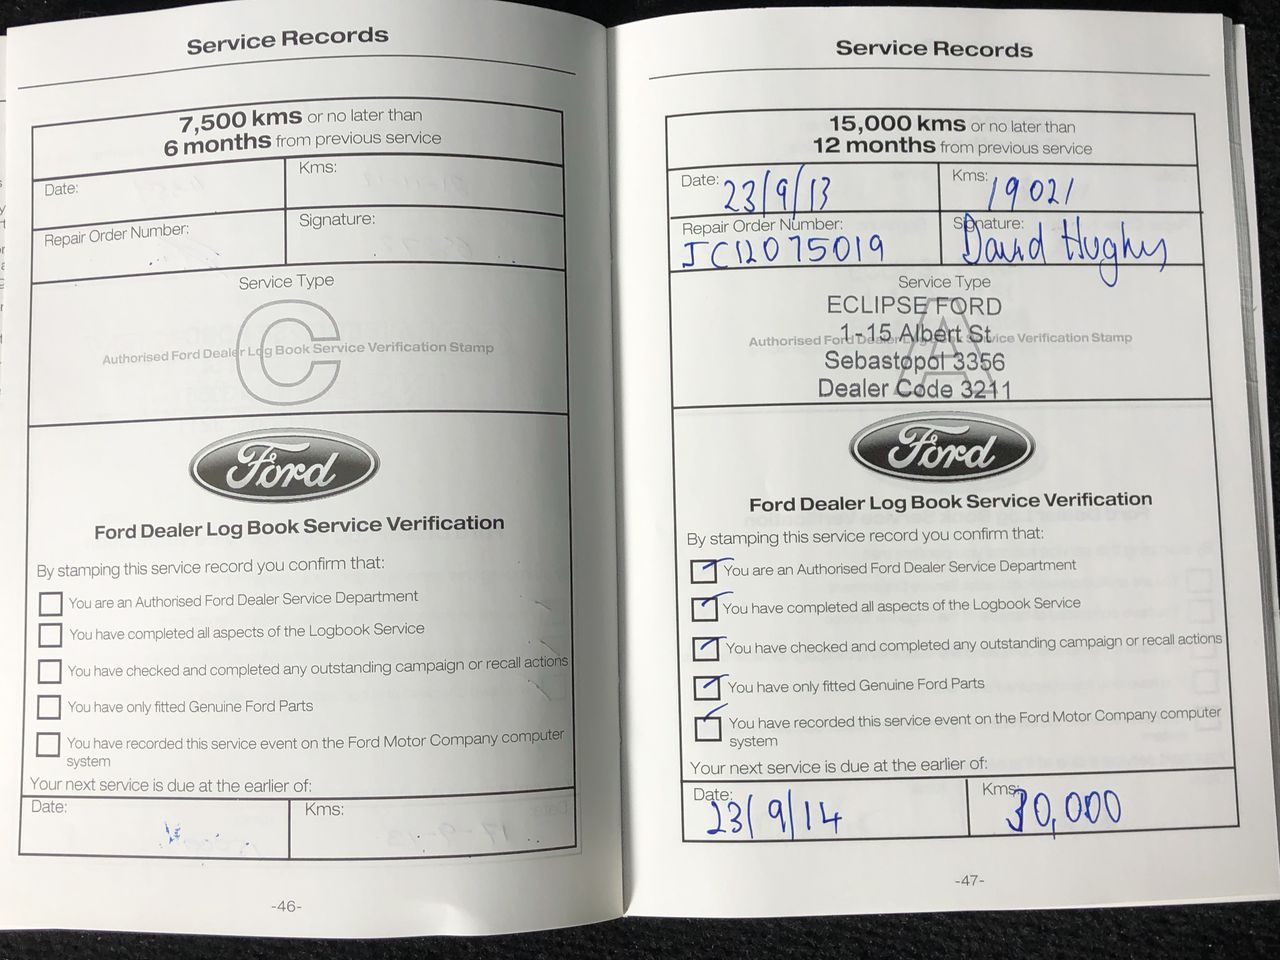 Service Records
7,500 kms or no later than
6 months from previous service
Date:
Kms:
Repair Order Number:
Signature:
Service Type
C
Authorised Ford Dealer Log Book Service Verification Stamp
Ford
Ford Dealer Log Book Service Verification
By stamping this service record you confirm that:
You are an Authorised Ford Dealer Service Department
You have completed all aspects of the Logbook Service
You have checked and completed any outstanding campaign or recall actions
You have only fitted Genuine Ford Parts
You have recorded this service event on the Ford Motor Company computer
system
Your next service is due at the earlier of:
Date:
Kms:
-46-
Service Records
15,000 kms or no later than
12 months from previous service
Date: 23/9/13
Kms: 19021
Repair Order Number:
JC12075019
Signature:
David Hughes
Service Type
ECLIPSE FORD
1-15 Albert St
A
Authorised Ford Dealer Log Book Service Verification Stamp
Sebastopol 3356
Dealer Code 3211
Ford
Ford Dealer Log Book Service Verification
By stamping this service record you confirm that:
You are an Authorised Ford Dealer Service Department
You have completed all aspects of the Logbook Service
You have checked and completed any outstanding campaign or recall actions
You have only fitted Genuine Ford Parts
You have recorded this service event on the Ford Motor Company computer
system
Your next service is due at the earlier of:
Date:
23/9/14
Kms:
30,000
-47-